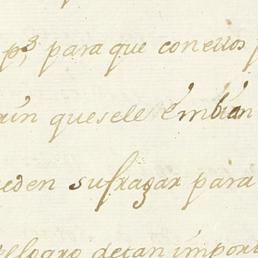 para que con ellos
quesele embian
eden sufragar para
logro detan import